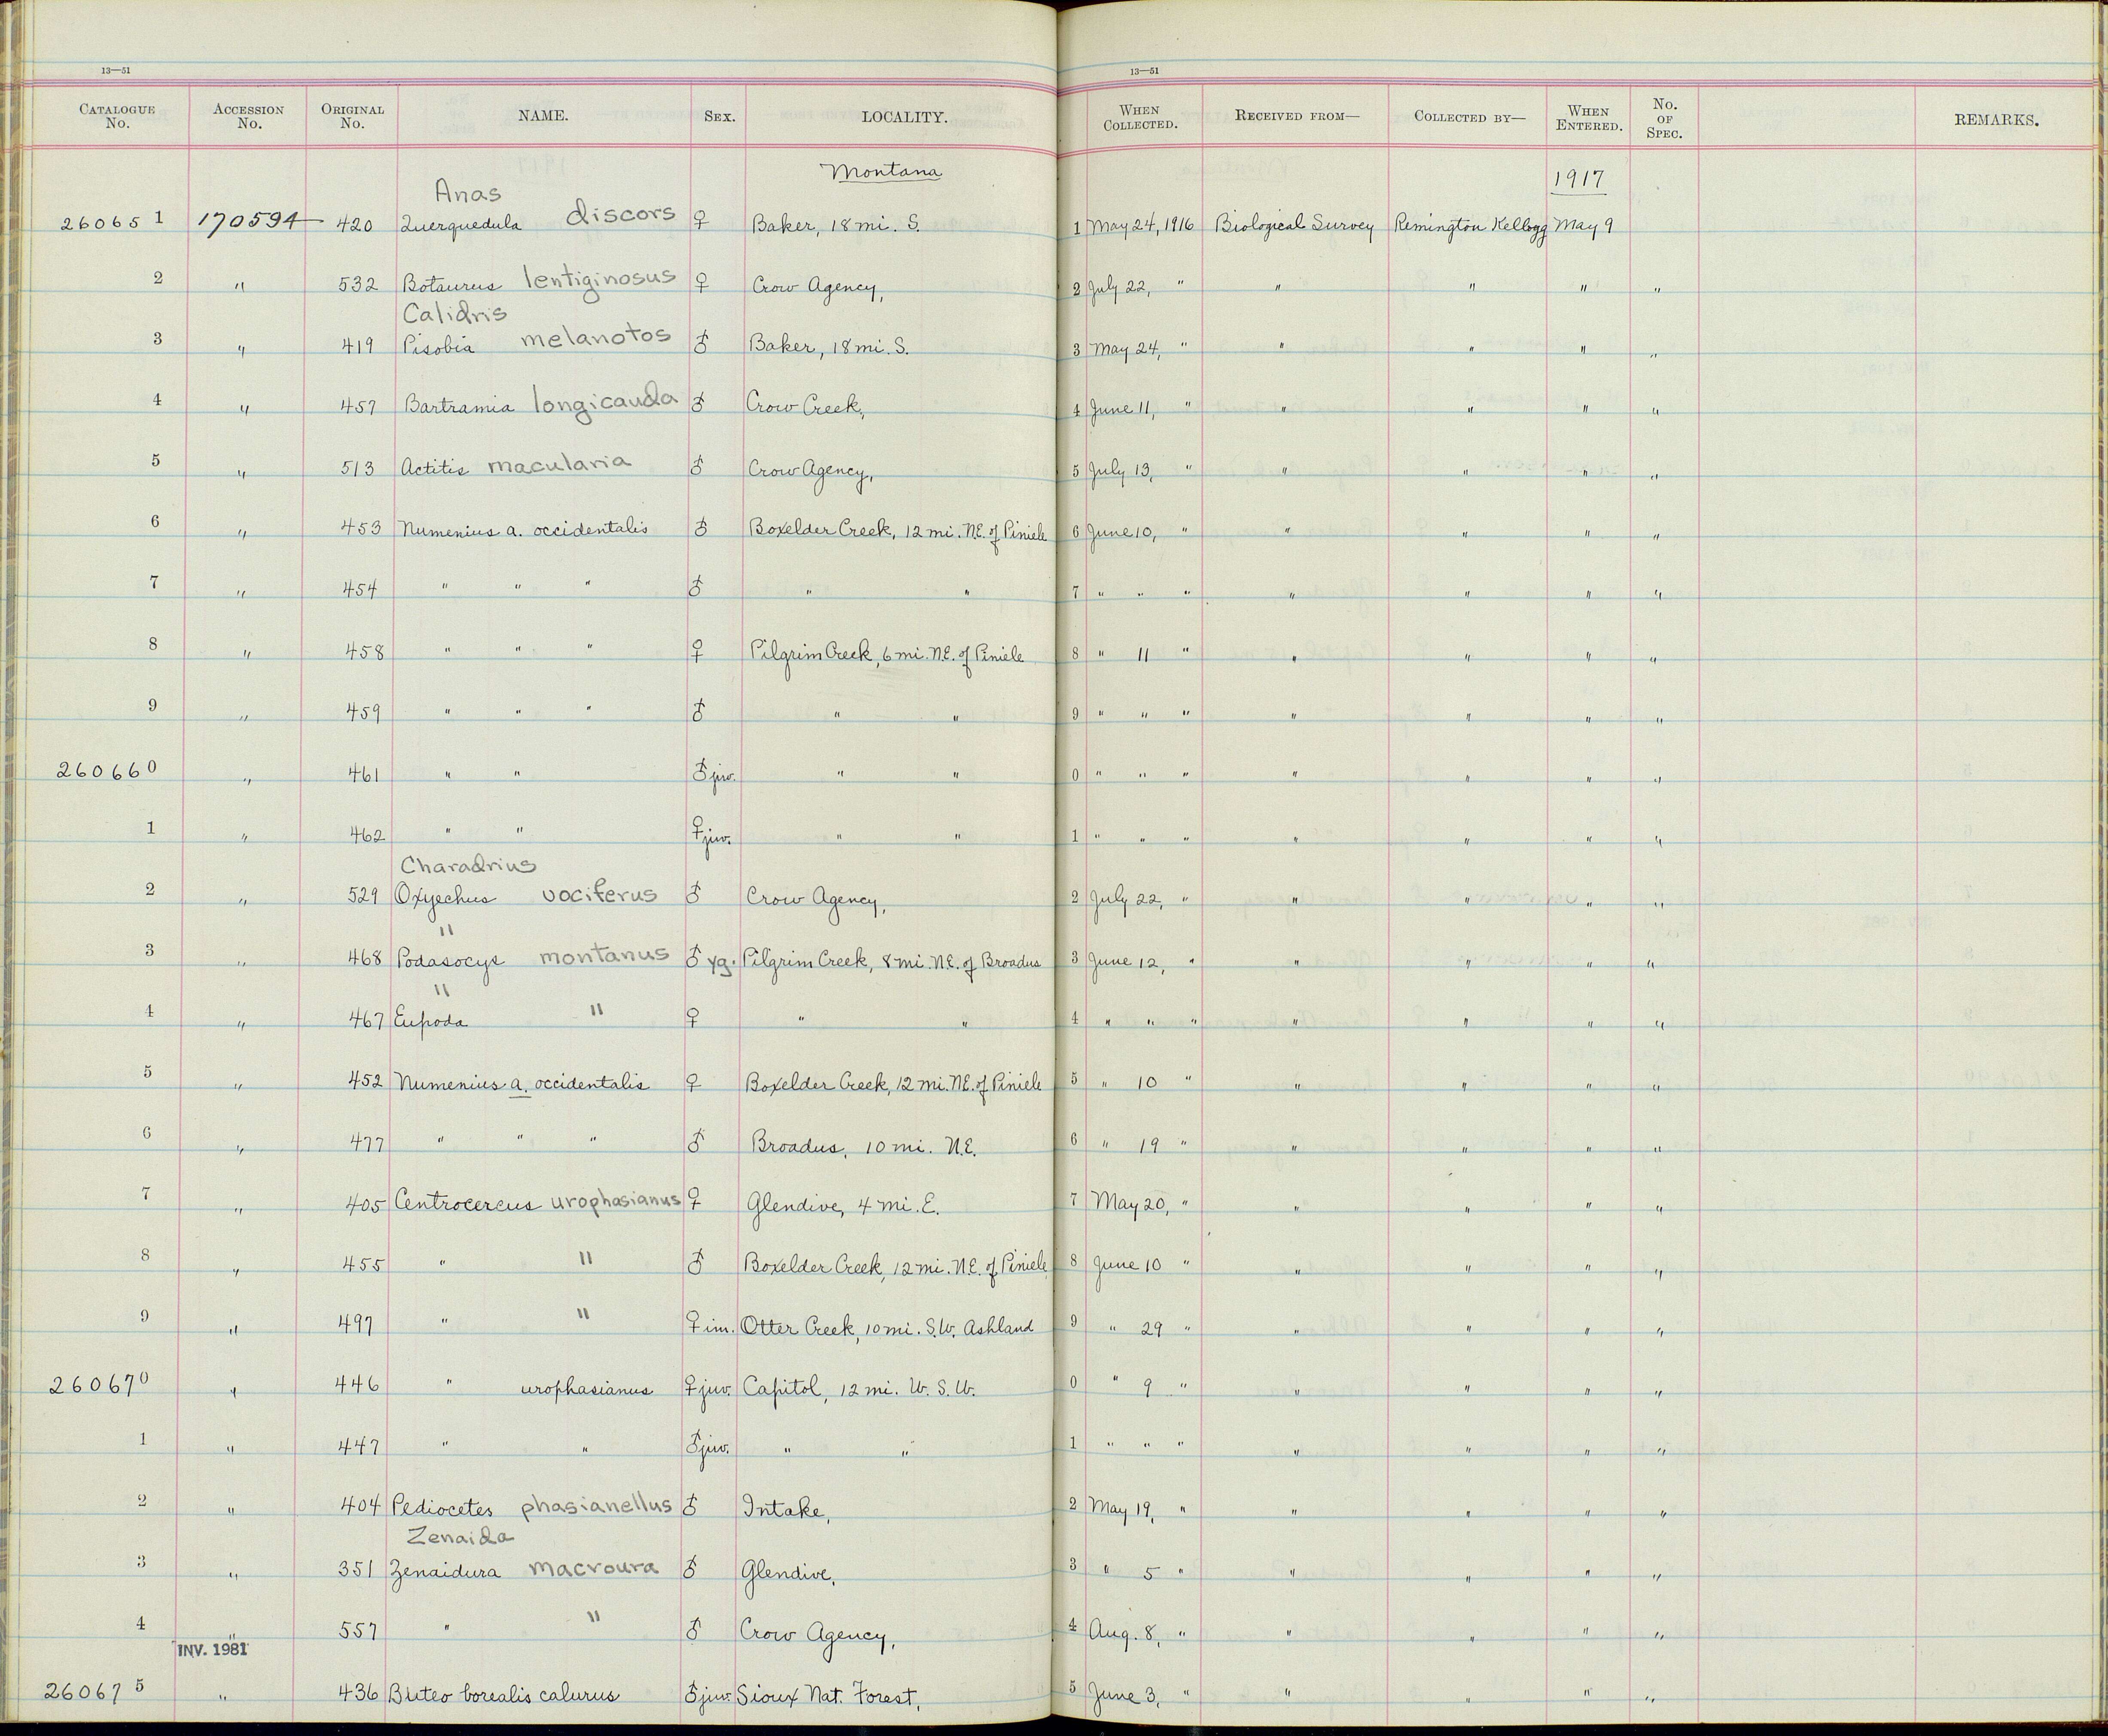 13—51 13—51
CATALOGUE No. ACCESSION No. ORIGINAL No. NAME. SEX. LOCALITY. WHEN COLLECTED. RECEIVED FROM— COLLECTED BY— WHEN ENTERED. No. OF SPEC. REMARKS.
Montana 1917
Anas
260651 170594 420 Querquedula discors ♀ Baker, 18 mi. S. 1 May 24, 1916 Biological Survey Remington Kellogg May 9
2 " 532 Botaurus lentiginosus ♀ Crow Agency, 2 July 22, " " " " "
Calidris
3 " 419 Pisobia melanotos ♂ Baker, 18 mi. S. 3 May 24, " " " " "
4 " 457 Bartramia longicauda ♂ Crow Creek, 4 June 11, " " " " "
5 " 513 Actitis macularia ♂ Crow Agency, 5 July 13, " " " " "
6 " 453 Numenius a. occidentalis ♂ Boxelder Creek, 12 mi. N.E. of Piniele 6 June 10, " " " " "
7 " 454 " " " ♂ " " 7 " " " " " " "
8 " 458 " " " ♀ Pilgrim Creek, 6 mi. N.E. of Piniele 8 " 11 " " " " "
9 " 459 " " " ♂ " " 9 " " " " " " "
260660 " 461 " " ♂ juv. " " 0 " " " " " " "
1 " 462 " " ♀ juv. " " 1 " " " " " " "
Charadrius
2 " 529 Oxyechus vociferus ♂ Crow Agency, 2 July 22, " " " " "
"
3 " 468 Podasocys montanus ♂ yg. Pilgrim Creek, 8 mi. N.E. of Broadus 3 June 12, " " " " "
"
4 " 467 Eupoda " ♀ " " 4 " " " " " " "
5 " 452 Numenius a. occidentalis ♀ Boxelder Creek, 12 mi. N.E. of Piniele 5 " 10 " " " " "
6 " 477 " " " ♂ Broadus, 10 mi. N.E. 6 " 19 " " " " "
7 " 405 Centrocercus urophasianus ♀ Glendive, 4 mi. E. 7 May 20, " " " " "
8 " 455 " " ♂ Boxelder Creek, 12 mi. N.E. of Piniele 8 June 10 " " " " "
9 " 497 " " ♀ im. Otter Creek, 10 mi. S.W. Ashland 9 " 29 " " " " "
260670 " 446 " urophasianus ♀ juv. Capitol, 12 mi. W. S. W. 0 " 9 " " " " "
1 " 447 " " ♂ juv. " " 1 " " " " " " "
2 " 404 Pediocetes phasianellus ♂ Intake, 2 May 19, " " " " "
Zenaida
3 " 351 Zenaidura macroura ♂ Glendive, 3 " 5 " " " " "
4 " 557 " " ♂ Crow Agency, 4 Aug. 8, " " " " "
INV. 1981
260675 " 436 Buteo borealis calurus ♂ juv. Sioux Nat. Forest, 5 June 3, " " " " "